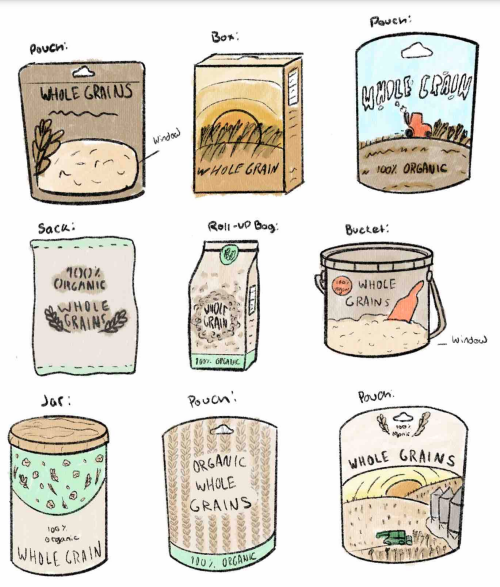 Pouch:
WHOLE GRAINS
Window
Box:
WHOLE GRAIN
Pouch:
WHOLE GRAIN
100% ORGANIC
Sack:
100%
ORGANIC
WHOLE
GRAINS
Roll-up Bag:
WHOLE
GRAIN
100% ORGANIC
Bucket:
WHOLE
GRAINS
Window
Jar:
100%
organic
WHOLE GRAIN
Pouch:
ORGANIC
WHOLE
GRAINS
100% ORGANIC
Pouch:
100%
organic
WHOLE GRAINS